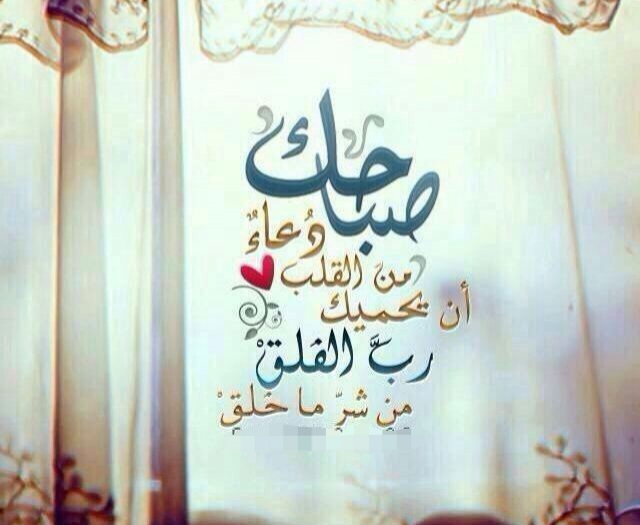 صباحك
دُعاءٌ
منَ القلب
أن يحميك
ربَّ الفَلقْ
مِن شرّ ما خَلقْ